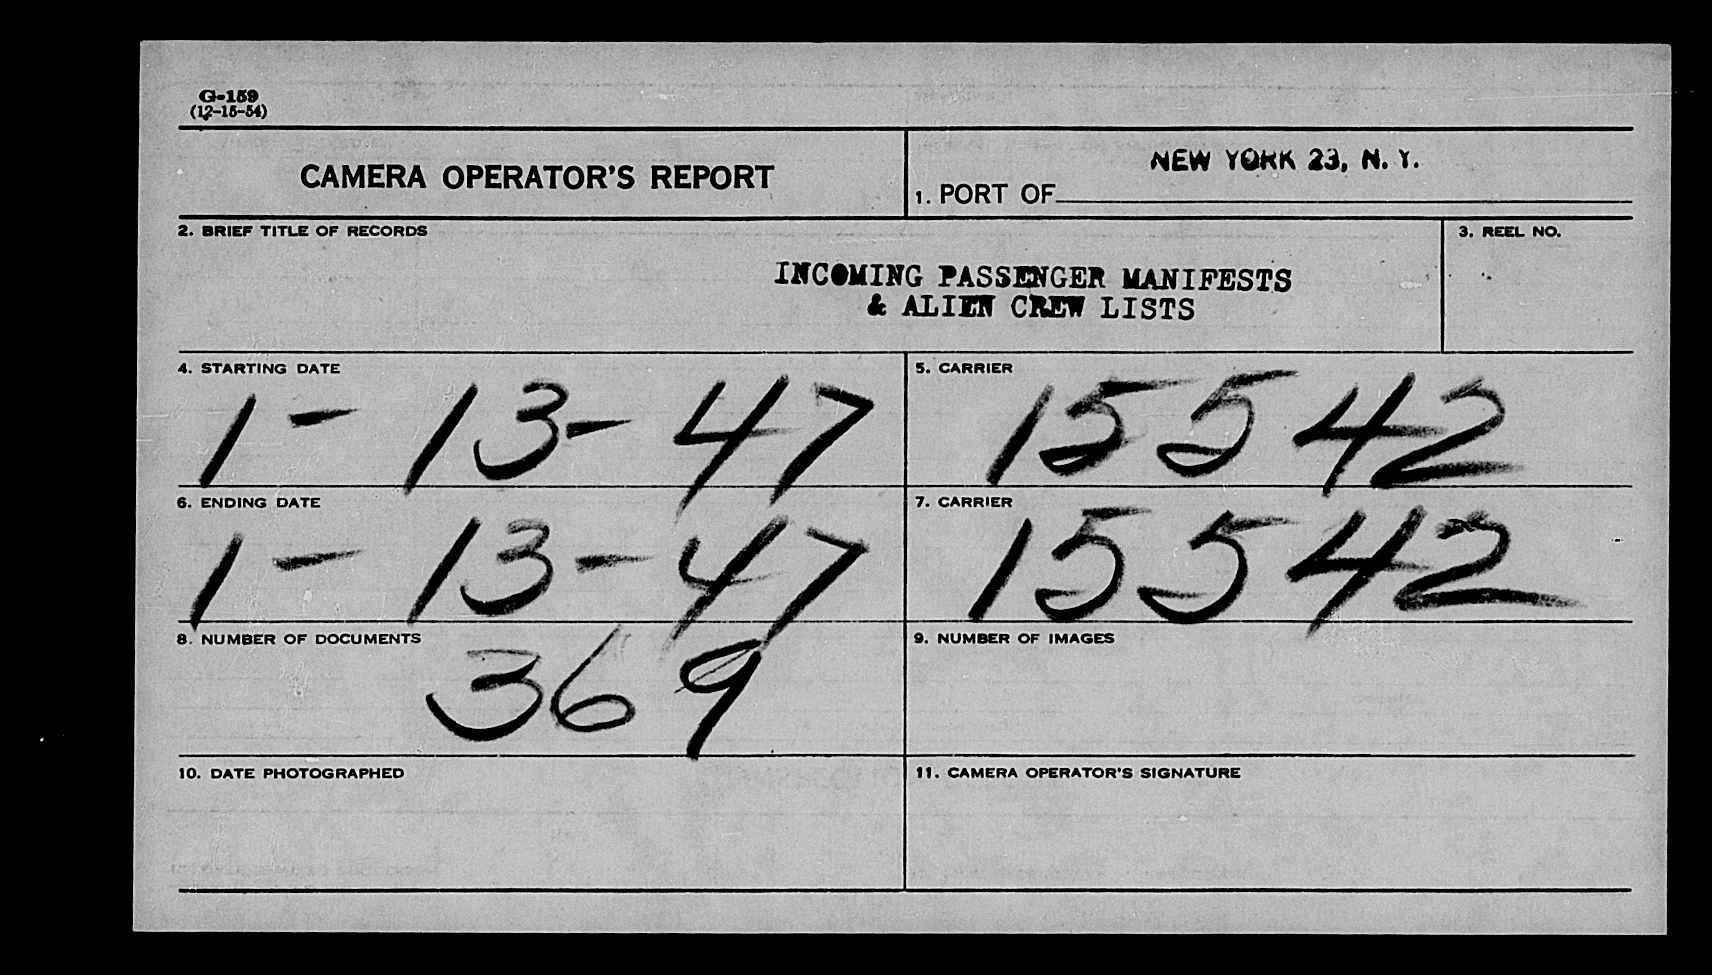 G-159
(12-15-54)
CAMERA OPERATOR'S REPORT
NEW YORK 23, N. Y.
1. PORT OF
2. BRIEF TITLE OF RECORDS
3. REEL NO.
INCOMING PASSENGER MANIFESTS
& ALIEN CREW LISTS
4. STARTING DATE
1-13-47
5. CARRIER
15542
6. ENDING DATE
1-13-47
7. CARRIER
15542
8. NUMBER OF DOCUMENTS
369
9. NUMBER OF IMAGES
10. DATE PHOTOGRAPHED
11. CAMERA OPERATOR'S SIGNATURE